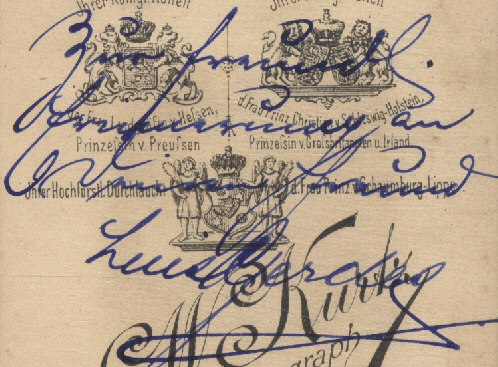 Ihrer Königl. Hoheit
Ihrer Königl. Hoheit
Zur freundl.
d. Frau Landgräfin v. Hessen,
d. Frau Prinz Christian v. Schleswig-Holstein,
Erinnerung an
Prinzeſsin v. Preuſsen
Prinzeſsin v. Groſsbritannien u. Irland
Deinen Freund
Ihrer Hochfürstl. Durchlaucht
d. Frau Prinz v. Schaumburg-Lippe
W. Kurtz
graph